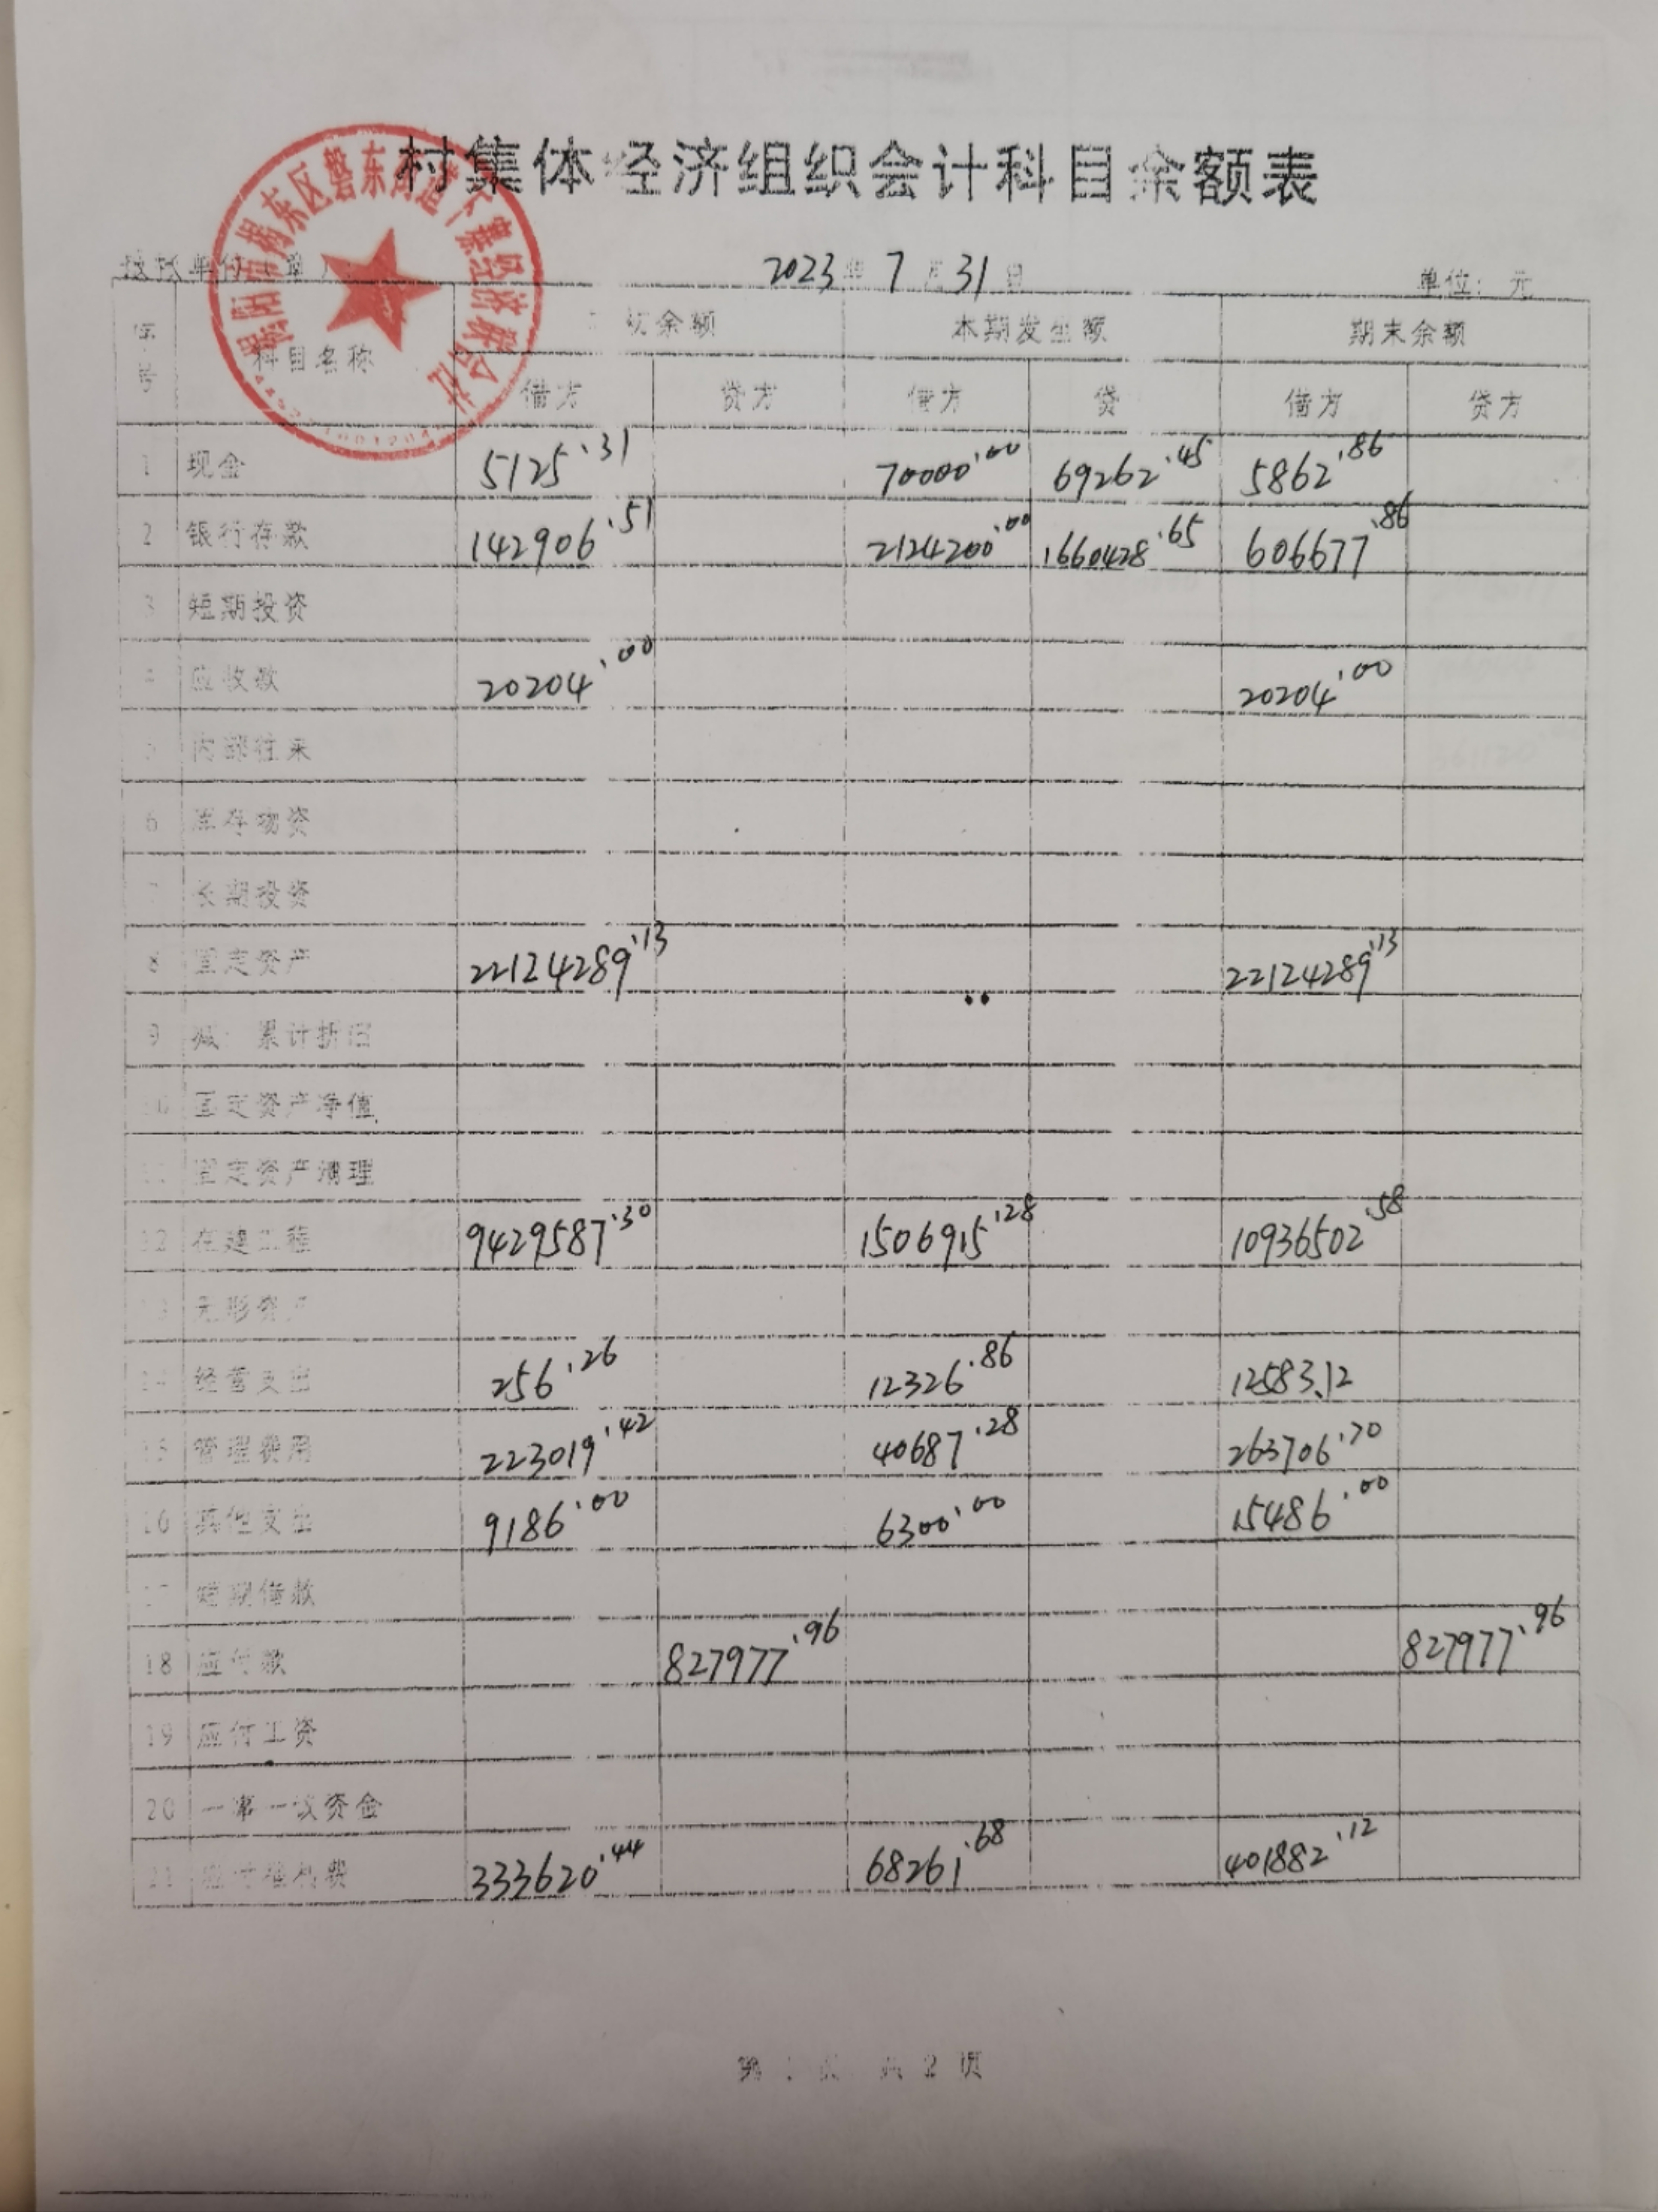 村集体经济组织会计科目余额表
单位（章） 2023年7月31日 单位：元
序号 科目名称 初余额 本期发生额 期末余额
借方 贷方 借方 贷 借方 贷方
1 现金 5125.31 70000.00 69262.45 5862.86
2 银行存款 142906.51 2124200.00 1660428.65 606677.86
3 短期投资
4 应收款 20204.00 20204.00
5 内部往来
6 库存物资
7 长期投资
8 固定资产 22124289.13 22124289.13
9 减：累计折旧
10 固定资产净值
11 固定资产清理
12 在建工程 9429587.30 1506915.28 10936502.58
13 无形资产
14 经营支出 256.26 12326.86 12583.12
15 管理费用 223019.42 40687.28 263706.70
16 其他支出 9186.00 6300.00 15486.00
17 短期借款
18 应付款 827977.96 827977.96
19 应付工资
20 一事一议资金
21 应付福利费 333620.44 68261.68 401882.12
第1页 共2页